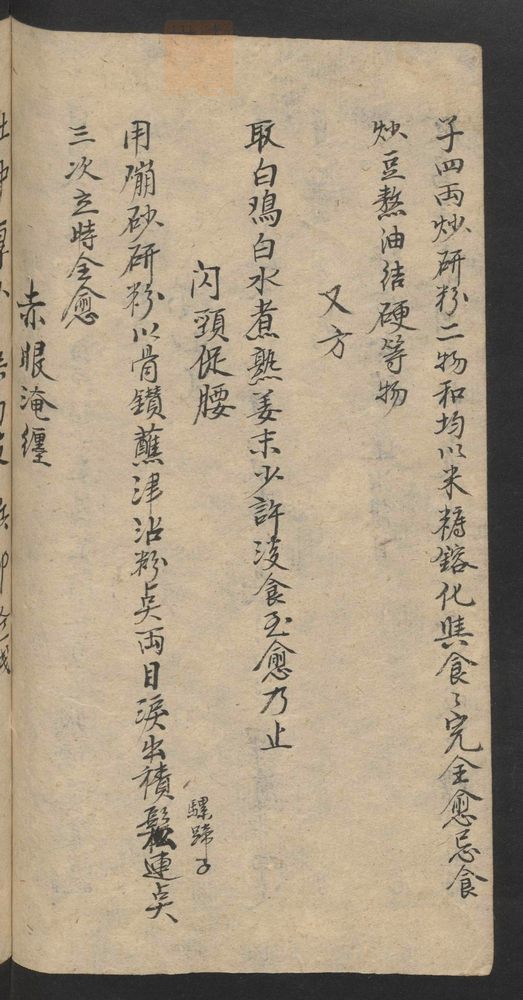 子四両炒研粉二物和均以米糖鎔化與食〻完全愈忌食
炒豆熬油结硬等物
又方
取白鳮白水煮熟姜末少許淡食至愈乃止
闪頸促腰
用硼砂研粉以骨鑚蘸津沾粉点両目淚出積鬆連点
騾蹄子
三次立時全愈
赤眼淹纏